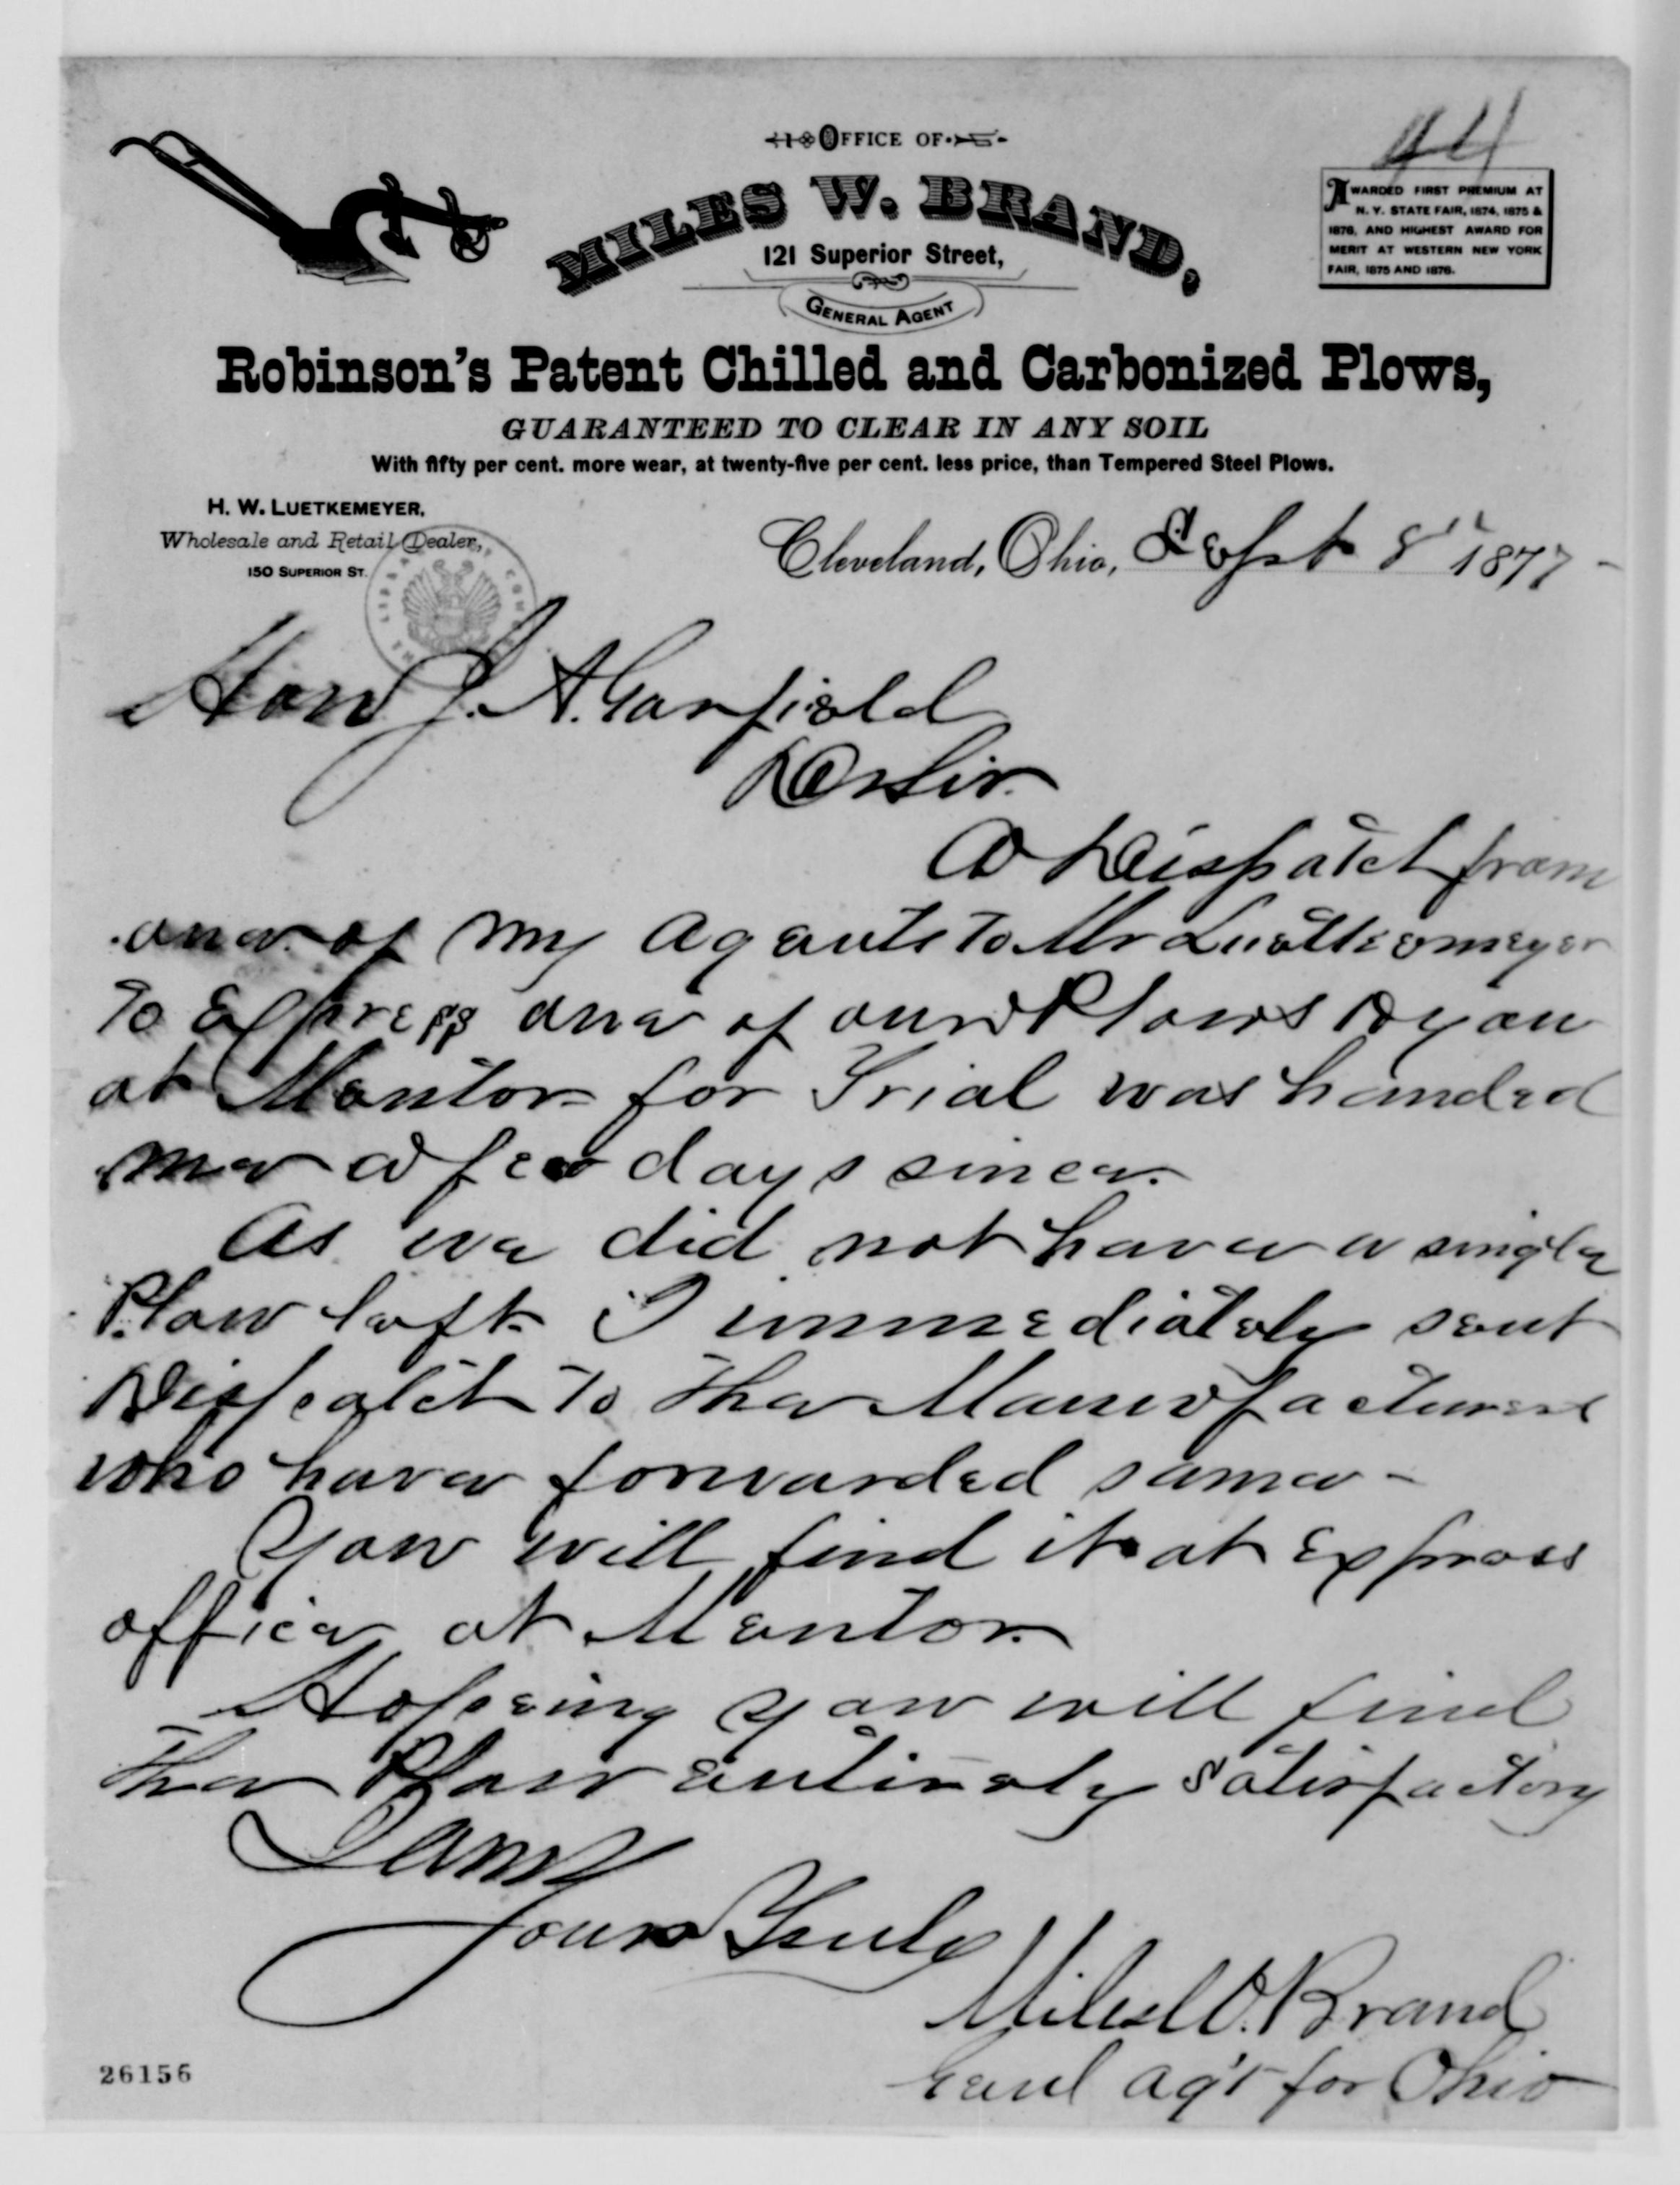 44
OFFICE OF
MILES W. BRAND,
121 Superior Street,
GENERAL AGENT
AWARDED FIRST PREMIUM AT
N. Y. STATE FAIR, 1874, 1875 &
1876, AND HIGHEST AWARD FOR
MERIT AT WESTERN NEW YORK
FAIR, 1875 AND 1876.
Robinson's Patent Chilled and Carbonized Plows,
GUARANTEED TO CLEAR IN ANY SOIL
With fifty per cent. more wear, at twenty-five per cent. less price, than Tempered Steel Plows.
H. W. LUETKEMEYER,
Wholesale and Retail Dealer,
150 SUPERIOR ST.
Cleveland, Ohio, Sept 8" 1877-
Hon J. A. Garfield
Dr Sir.
A Dispatch from
one of my Agents to Mr Luetkemeyer
To Express one of our Plows to you
at Mentor for Trial was handed
me a few days since.
As we did not have a single
Plow left I immediately sent
Dispatch To The Manufacturers
who have forwarded same -
You will find it at Express
office at Mentor.
Hopeing you will find
The Plow entirely satisfactory
I am
Yours Truly
Miles W. Brand
Genl Ag't for Ohio
26156